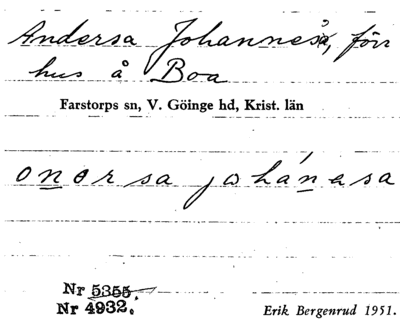 Andersa Johannesa, förr
hus å Boa
Farstorps sn, V. Göinge hd, Krist. län
onorsa johánasa
Nr 5355.
Nr 4932.
Erik Bergenrud 1951.